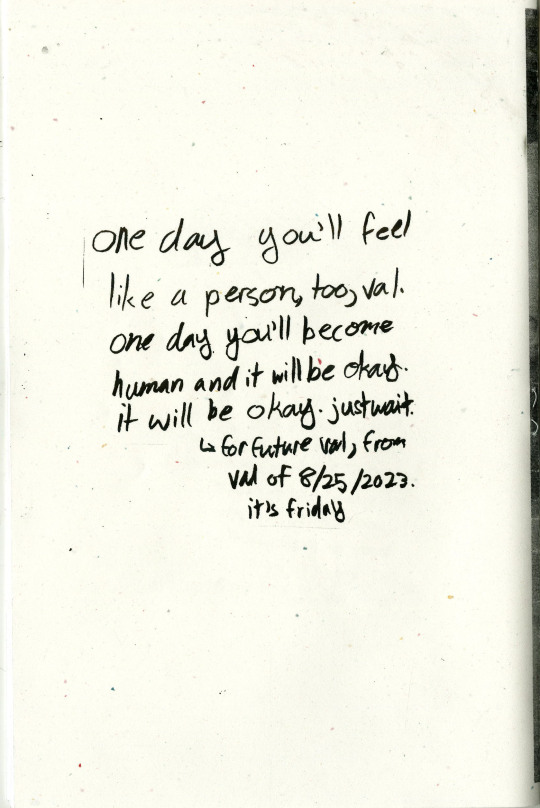 one day you'll feel
like a person, too, val.
one day you'll become
human and it will be okay.
it will be okay. just wait.
↳ for future val, from
val of 8/25/2023.
it's friday